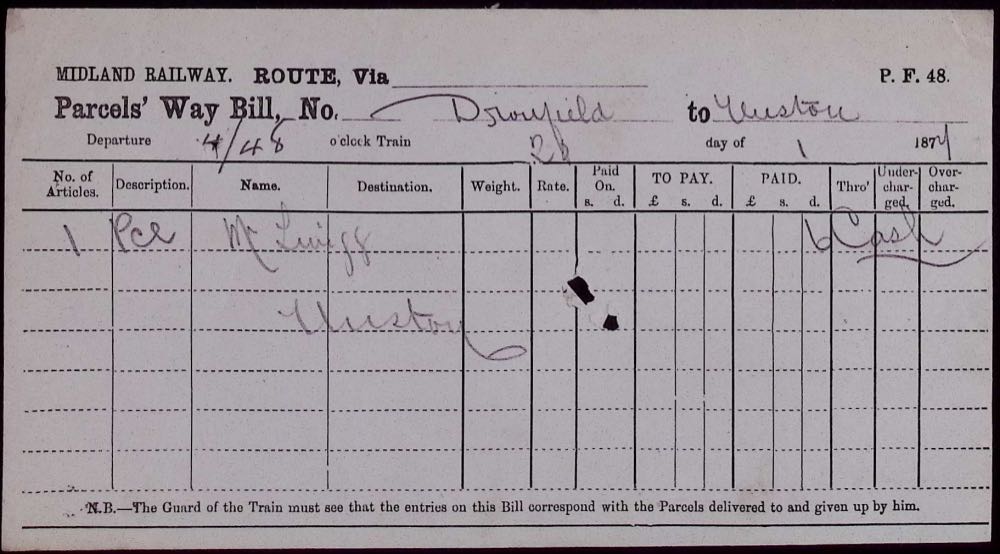 MIDLAND RAILWAY. ROUTE, Via P. F. 48.
Parcels' Way Bill, No. Dronfield to Unston
Departure 4/48 o'clock Train 28 day of 1 1877
No. of Articles. Description. Name. Destination. Weight. Rate. Paid On. s. d. TO PAY. £ s. d. PAID. £ s. d. Thro' Under-char-ged. Over-char-ged.
1 Pcl Mr 6 Cash
Unston
N.B.—The Guard of the Train must see that the entries on this Bill correspond with the Parcels delivered to and given up by him.